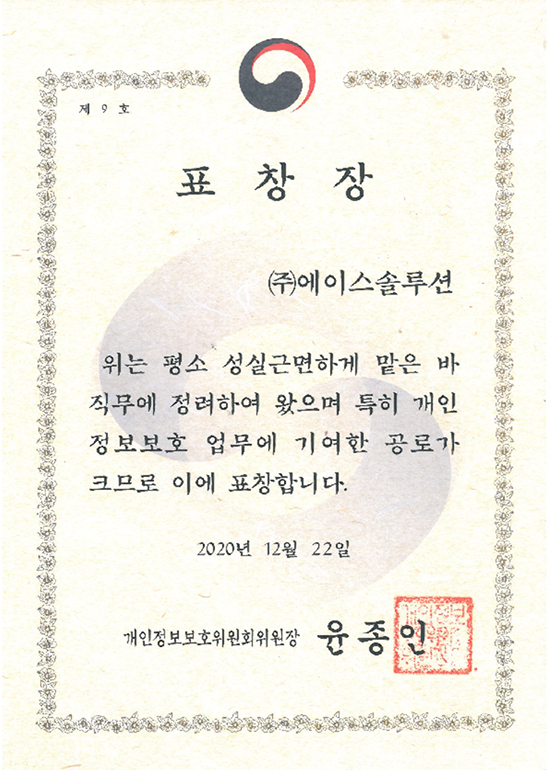 제 9 호
표 창 장
㈜에이스솔루션
위는 평소 성실근면하게 맡은 바
직무에 정려하여 왔으며 특히 개인
정보보호 업무에 기여한 공로가
크므로 이에 표창합니다.
2020년 12월 22일
개인정보보호위원회위원장 윤종인